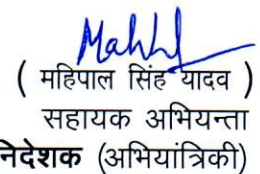 Mahipal
( महिपाल सिंह यादव )
सहायक अभियन्ता
निदेशक (अभियांत्रिकी)